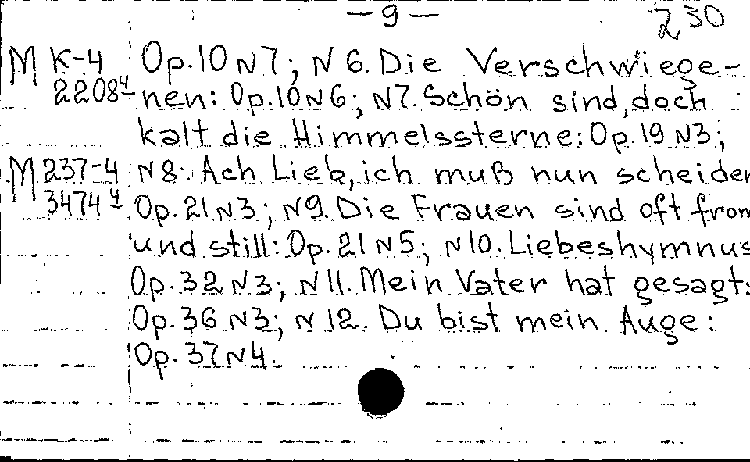 — 9 — 230
М К-4 Op. 10 N 7; N 6. Die Verschwiege-
2208 ч nen: Op. 10 N 6; N 7. Schön sind, doch
kalt die Himmelssterne: Op. 19 N 3;
М 237-4 N 8. Ach Lieb, ich muß nun scheiden
3474 ч Op. 21 N 3; N 9. Die Frauen sind oft from
und still: Op. 21 N 5; N 10. Liebeshymnus
Op. 32 N 3; N 11. Mein Vater hat gesagt:
Op. 36 N 3; N 12. Du bist mein Auge:
Op. 37 N 4.